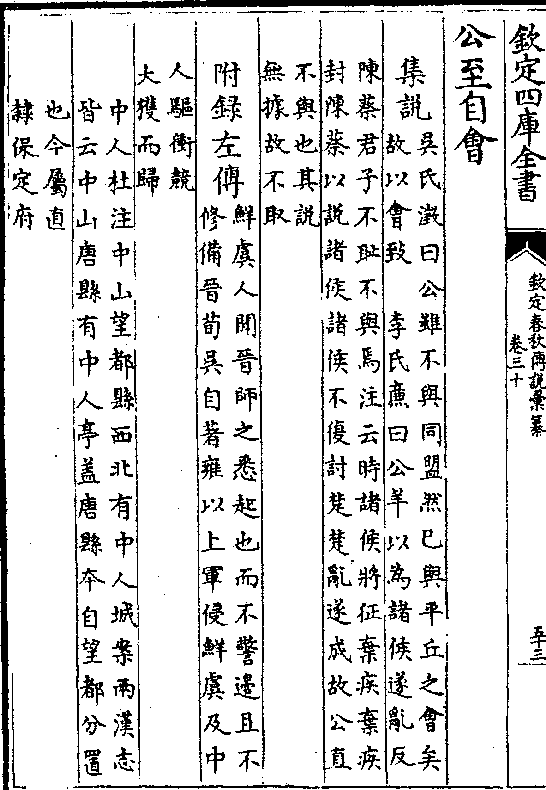 欽定四庫全書
欽定春秋傳說彙纂
卷三十
五十三
公至自會
集說
吳氏澂曰公雖不與同盟然已與平丘之會矣
故以會致　李氏廉曰公羊以為諸侯遂亂反
陳蔡君子不耻不與焉注云時諸侯將征棄疾棄疾
封陳蔡以説諸侯諸侯不復討楚楚亂遂成故公直
不與也其説
無據故不取
附録左傳
鮮虞人聞晉師之悉起也而不警邊且不
修備晉荀吳自著雍以上軍侵鮮虞及中
人驅衝競
大獲而歸
中人杜注中山望都縣西北有中人城案兩漢志
皆云中山唐縣有中人亭盖唐縣夲自望都分置
也今屬直
隸保定府